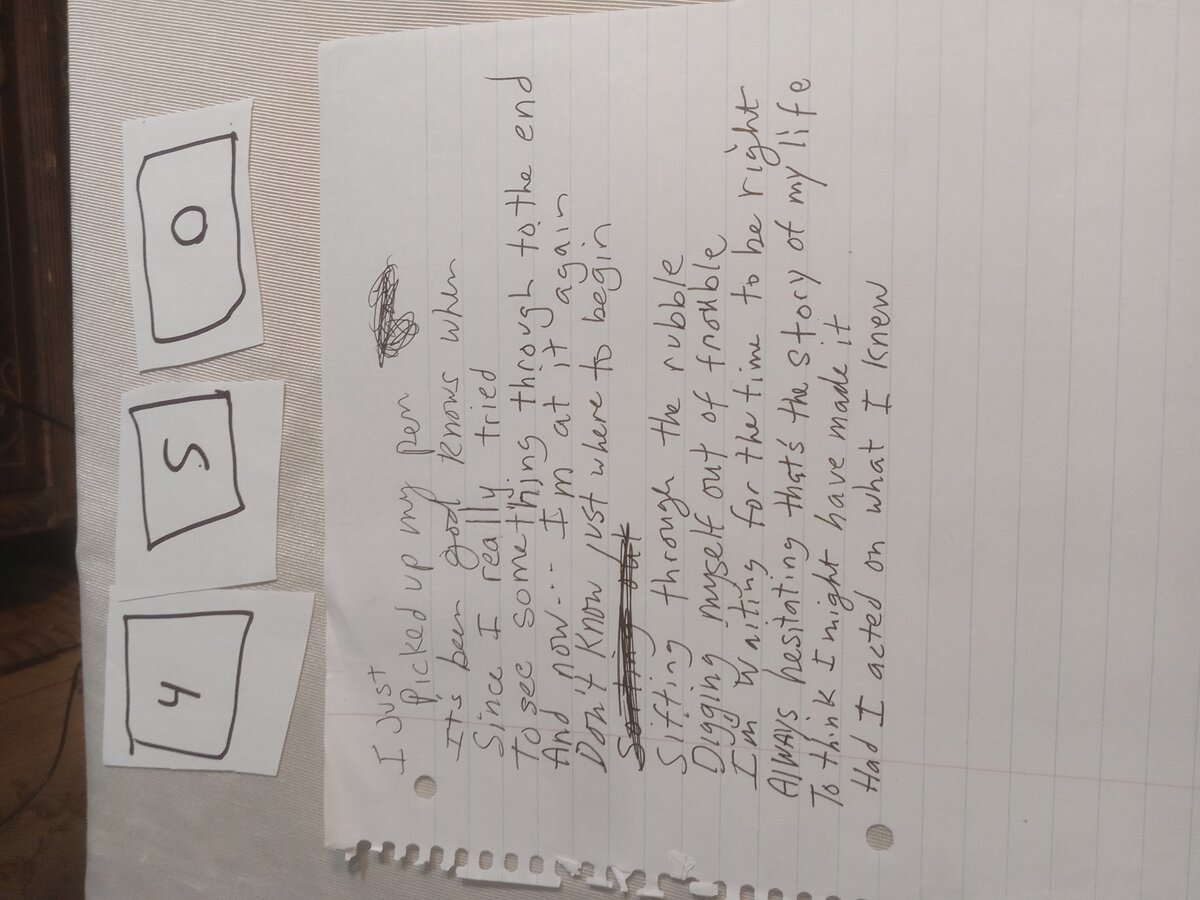 4 5 0
I Just
Picked up my pen
It's been good knows when
Since I really tried
To see something through to the end
And now... I'm at it again
Don't know just where to begin
Sifting through the rubble
Digging myself out of trouble
I'm waiting for the time to be right
Always hesitating that's the story of my life
To think I might have made it
Had I acted on what I knew